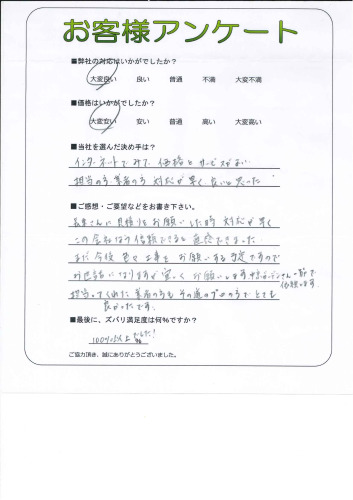 お客様アンケート
■弊社の対応はいかがでしたか？
大変良い 良い 普通 不満 大変不満
■価格はいかがでしたか？
大変安い 安い 普通 高い 大変高い
■当社を選んだ決め手は？
インターネットでみて、価格とサービスがよい
担当の方 業者の方 対応が早く、良いと思った
■ご感想・ご要望などをお書き下さい。
さんに見積りをお願いした時 対応が早く
この会社なら信頼できると直感できました
まだ今後 色々工事をお願いする予定ですので
お世話になりますが宜しくお願いします
担当してくれた業者の方もその道のプロの方でとても
良かったです。
■最後に、ズバリ満足度は何%ですか？
100%以上でした！
%
ご協力頂き、誠にありがとうございました。